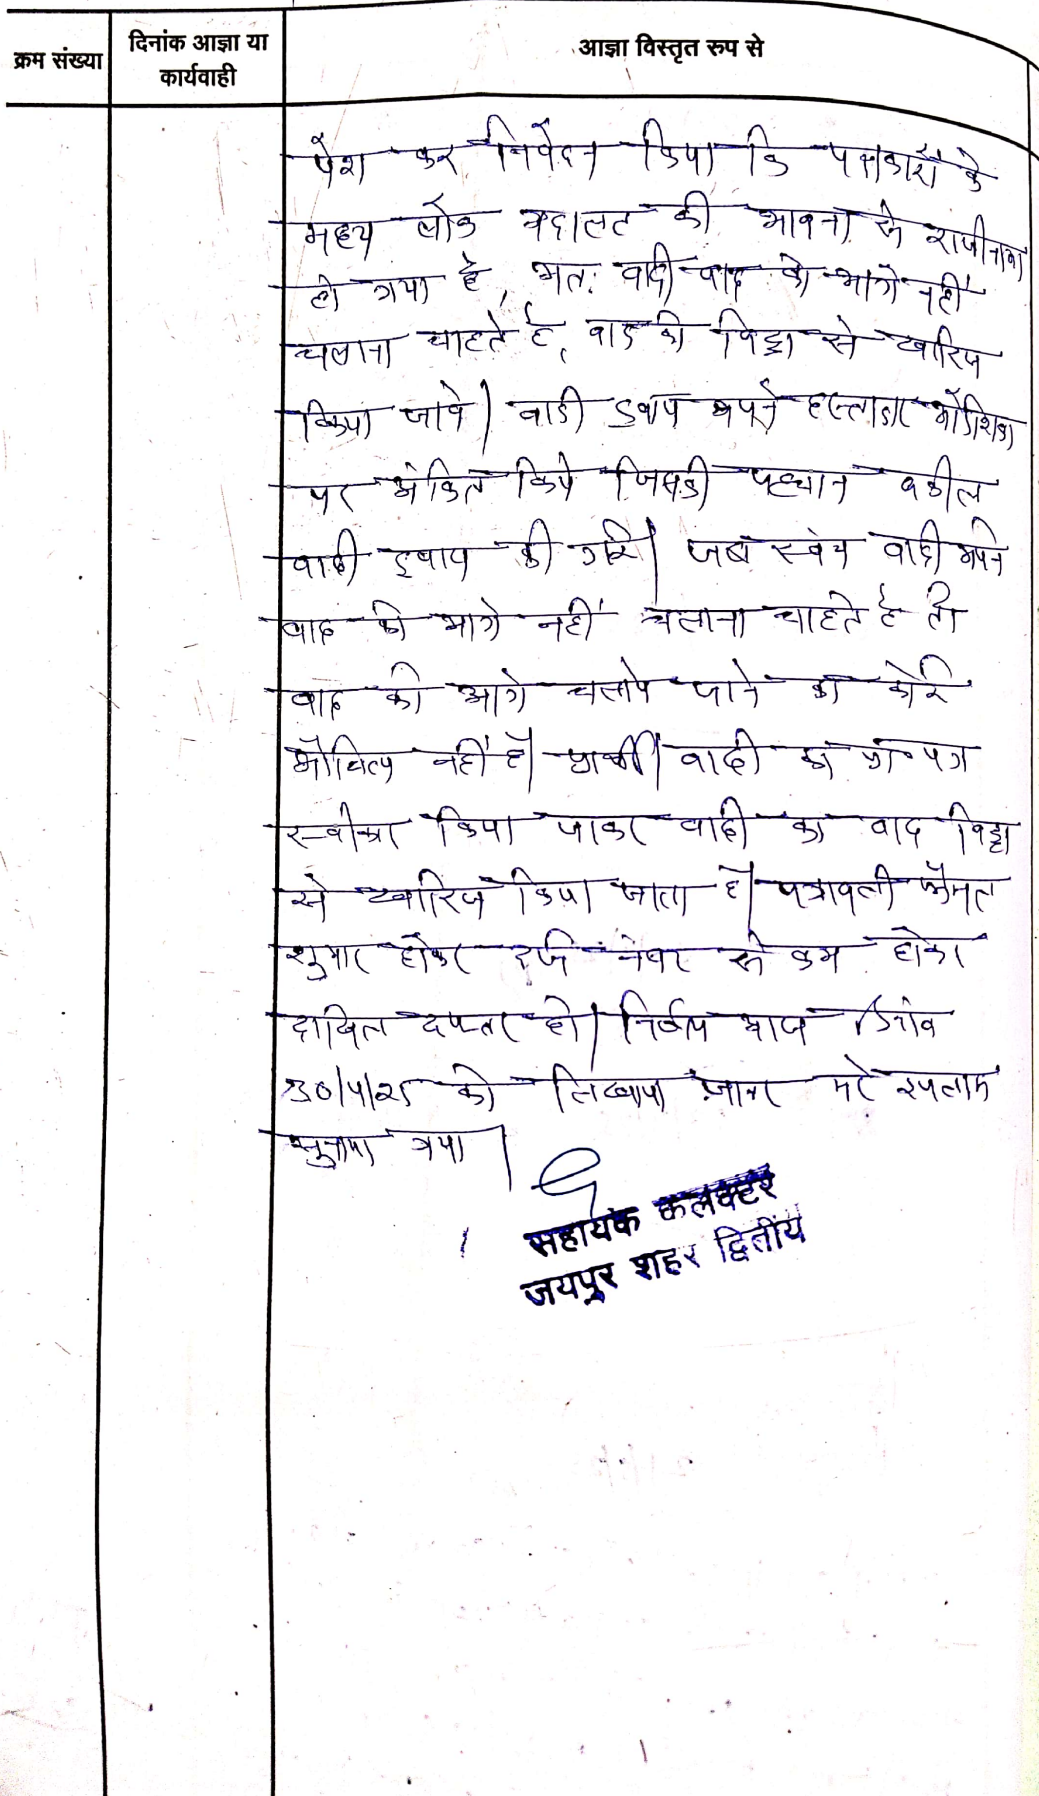 क्रम संख्या
दिनांक आज्ञा या
कार्यवाही
आज्ञा विस्तृत रुप से
पेश कर निवेदन किया कि पक्षकारों के
मध्य लोक अदालत की भावना से राजीनामा
हो गया है, अतः वादी वाद को आगे नहीं
चलाना चाहते है, वाद को विड्रा से खारिज
किया जावे। वादी द्वारा अपने हस्ताक्षर ऑर्डरशिट
पर अंकित किये जिसकी पहचान वकील
वादी द्वारा की गई। जब स्वंय वादी अपने
वाद को आगे नहीं चलाना चाहते है तो
वाद को आगे चलाये जाने का कोई
औचित्य नहीं है। प्रार्थी। वादी का प्रा० पत्र
स्वीकार किया जाकर वादी का वाद विड्रा
से खारिज किया जाता है। पत्रावली फैसल
शुमार होकर दर्ज नंबर से कम होकर
दाखिल दफ्तर हो। निर्णय आज दिनांक
को लिखाया जाकर सरे इजलास
सुनाया गया।
सहायक कलक्टर
जयपुर शहर द्वितीय